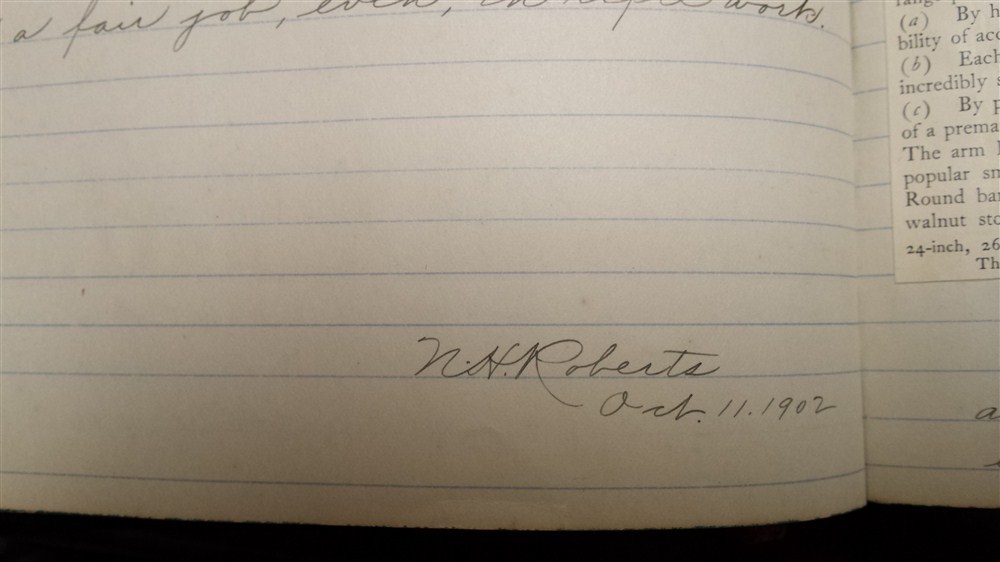 a fair job, even, in rifle work.
N.H. Roberts
Oct. 11. 1902
(a) By h
bility of acc
(b) Each
incredibly s
(c) By p
of a prema
The arm
popular sm
Round bar
walnut sto
24-inch, 26
Th
a